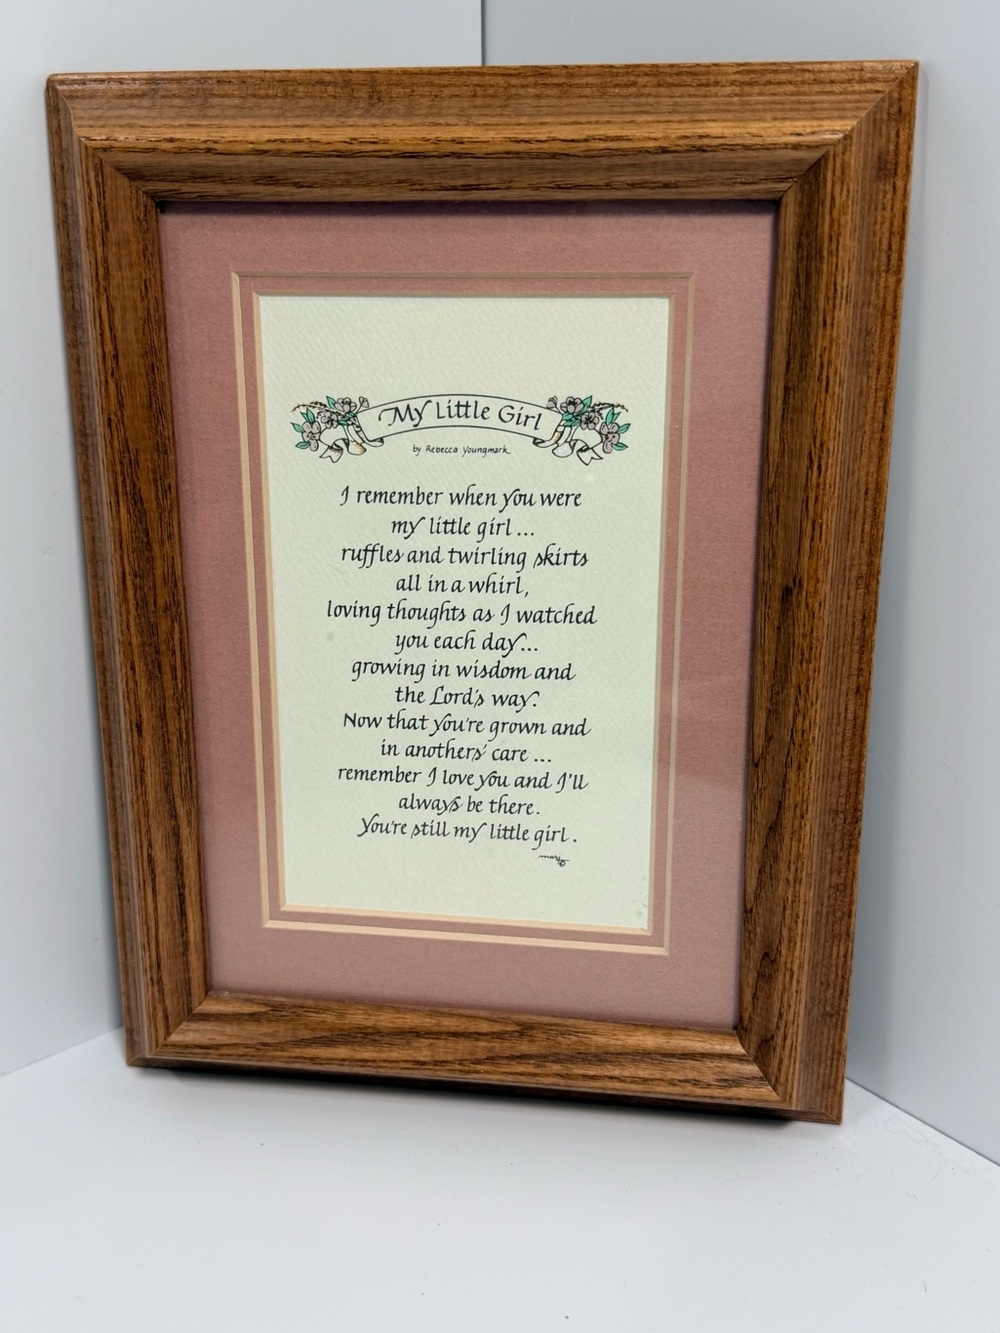 My Little Girl
by Rebecca Youngmark
I remember when you were
my little girl...
ruffles and twirling skirts
all in a whirl,
loving thoughts as I watched
you each day...
growing in wisdom and
the Lord's way.
Now that you're grown and
in anothers' care...
remember I love you and I'll
always be there.
You're still my little girl.